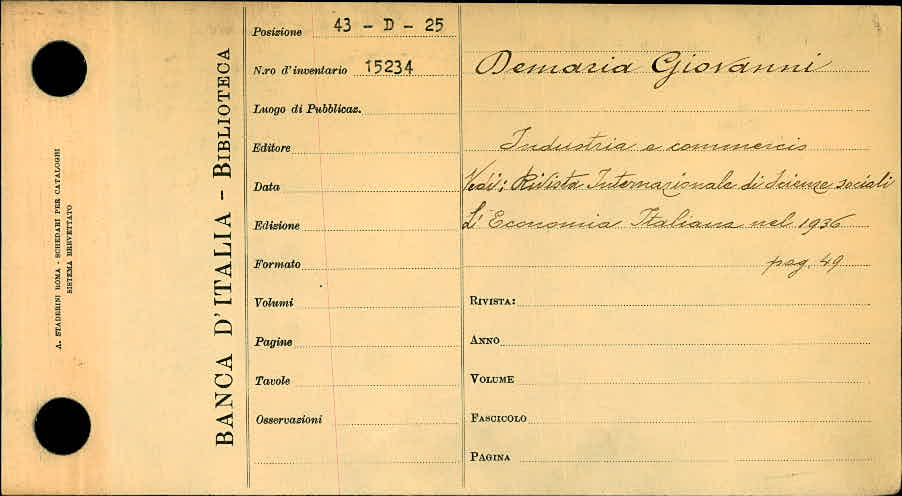 A. STADERINI ROMA - SCHEDARI PER CATALOGHI
SISTEMA BREVETTATO
BANCA D'ITALIA - BIBLIOTECA
Posizione 43 - D - 25
N.ro d'inventario 15234
Luogo di Pubblicaz.
Editore
Data
Edizione
Formato
Volumi
Pagine
Tavole
Osservazioni
Demaria Giovanni
Industria e commercio
Vedi: Rivista Internazionale di Scienze sociali
L'Economia Italiana nel 1936
pag. 49
RIVISTA:
ANNO
VOLUME
FASCICOLO
PAGINA